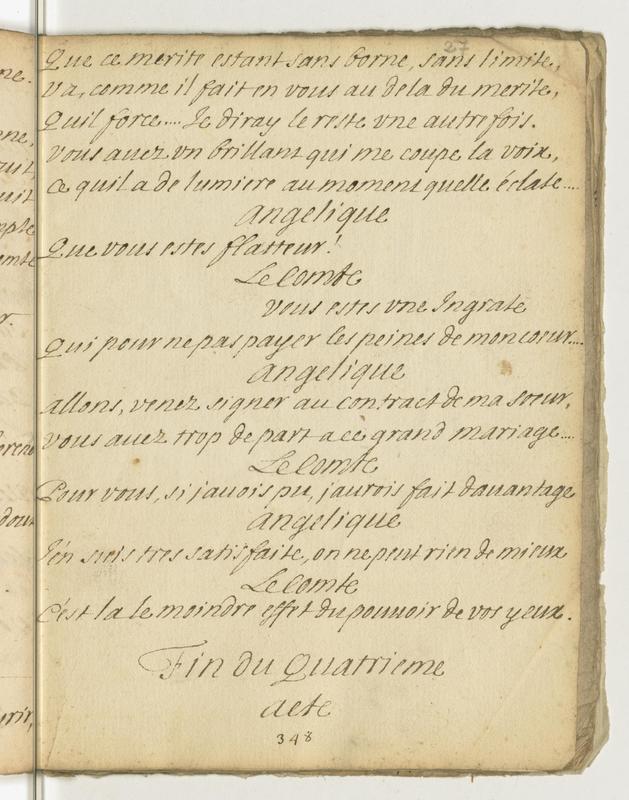 27
Que ce merite estant sans borne, sans limite,
Va, comme il fait en vous au dela du merite,
Quil force.... Je diray le reste une autre fois.
Vous avez un brillant qui me coupe la voix,
Ce quil a de lumiere au moment quelle éclate....
Angelique
Que vous estes flatteur!
Le Comte
Vous estes une Ingrate
Qui pour ne pas payer les peines de mon coeur....
Angelique
allons, venez signer au contract de ma soeur,
Vous avez trop de part a ce grand mariage....
Le Comte
Pour vous, si j'avois pu, j'aurois fait davantage
Angelique
J'en suis tres satisfaite, on ne peut rien de mieux
Le Comte
C'est la le moindre effet du pouvoir de vos yeux.
Fin du Quatrieme
acte
348